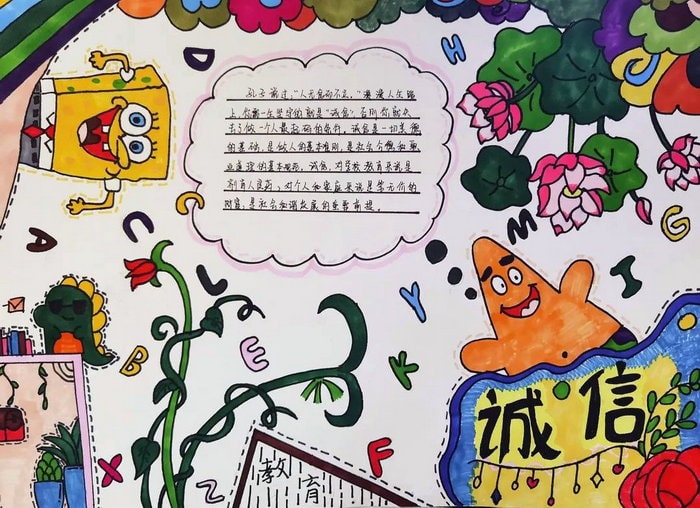 D
H
孔子曾说："人无信而不立。"漫漫人生路
上，你需一生坚守的就是"诚信"，否则你就失
去了做一个人最起码的条件。诚信是一切美德
的基础，是做人的基本准则，是社会公德和职
业道德的基本规范。诚信，对学校教育来说是
良药，对个人和家庭来说是无价的
财富，是社会和谐发展的重要前提。
C
J
G
M
A
U
L
I
Y
B
E
K
诚信
X
Z
F
教育